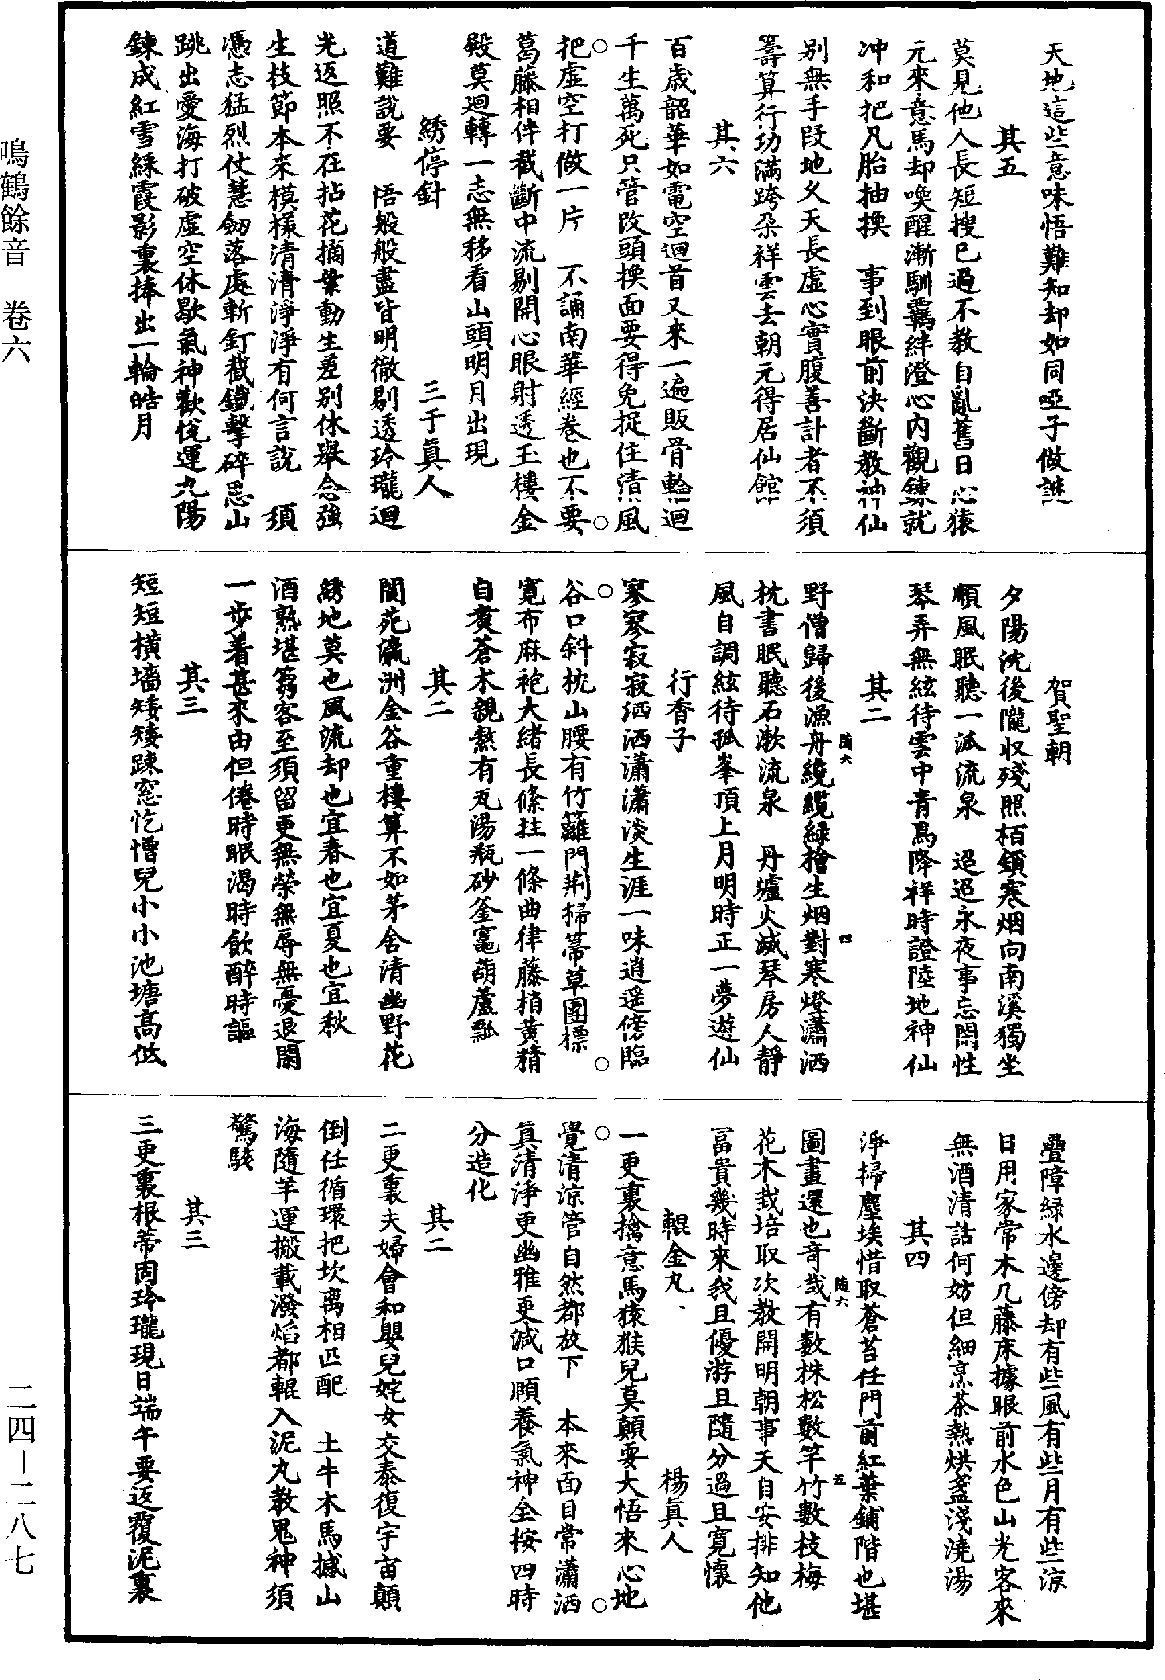 鳴鶴餘音　卷六
天地這些意味悟難知却如同啞子做謎
其五
莫見他人長短搜已過不教自亂舊日心猿
元來意馬却喚醒漸馴羈絆澄心內觀鍊就
冲和把凡胎抽換　事到眼前決斷教神仙
別無手段地久天長虛心實腹善計者不須
籌算行功滿跨朶祥雲去朝元得居仙館
其六
百歲韶華如電空迴首又來一遍販骨輪迴
千生萬死只管改頭換面要得免捉住清風
把虛空打做一片　不誦南華經卷也不要
葛藤相伴截斷中流剔開心眼射透玉樓金
殿莫迴轉一志無移看山頭明月出現
綉停針　　　　三于真人
道難說要　悟般般盡皆明徹剔透玲瓏迴
光返照不在拈花摘葉動生差別休舉念強
生枝節本來模樣清清淨淨有何言說　須
憑志猛烈仗慧劒落處斬釘截鐵擊碎恩山
跳出愛海打破虛空休歇氣神歡悅運九陽
鍊成紅雪綵霞影裏捧出一輪皓月
賀聖朝
夕陽沈後隴收殘照栢鎖寒烟向南溪獨坐
順風眠聽一派流泉　迢迢永夜事忘閑性
琴弄無絃待雲中青鳥降祥時證陸地神仙
其二
野僧歸後漁舟纔纜綠檜生烟對寒燈瀟洒
枕書眠聽石漱流泉　丹爐火滅琴房人靜
風自調絃待孤峯頂上月明時正一夢遊仙
行香子
寥寥寂寂洒洒瀟瀟淡生涯一味逍遥傍臨
谷口斜枕山腰有竹籬門荆掃箒草團標
寬布麻袍大緒長條拄一條曲律藤梢黃精
自煑蒼木親熬有瓦湯瓶砂釜竈葫蘆瓢
其二
閬苑瀛洲金谷重樓算不如茅舍清幽野花
綉地莫也風流却也宜春也宜夏也宜秋
酒熟堪篘客至須留更無榮無辱無憂退閑
一步着甚來由但倦時眠渴時飲醉時謳
其三
短短橫墻矮矮踈窓忔憎兒小小池塘高低
疊障綠水邊傍却有些風有些月有些涼
日用家常木几藤床據眼前水色山光客來
無酒清話何妨但細烹茶熱烘盞淺澆湯
其四
淨掃塵埃惜取蒼苔任門前紅葉鋪階也堪
圖畫還也奇哉有數株松數竿竹數枝梅
花木栽培取次教開明朝事天自安排知他
富貴幾時來我且優游且隨分過且寬懷
輥金丸　　　　楊真人
一更裏擒意馬猿猴兒莫顛耍大悟來心地
覺清涼管自然都放下　本來面目常瀟洒
真清淨更幽雅更減口頤養氣神全按四時
分造化
其二
二更裏夫婦會和嬰兒姹女交泰復宇宙顛
倒任循環把坎离相匹配　土牛木馬撼山
海隨羊運搬載潑焰都輥入泥丸教鬼神須
驚駭
其三
三更裏根蒂固玲瓏現日端午要返覆泥裏
二四—二八七